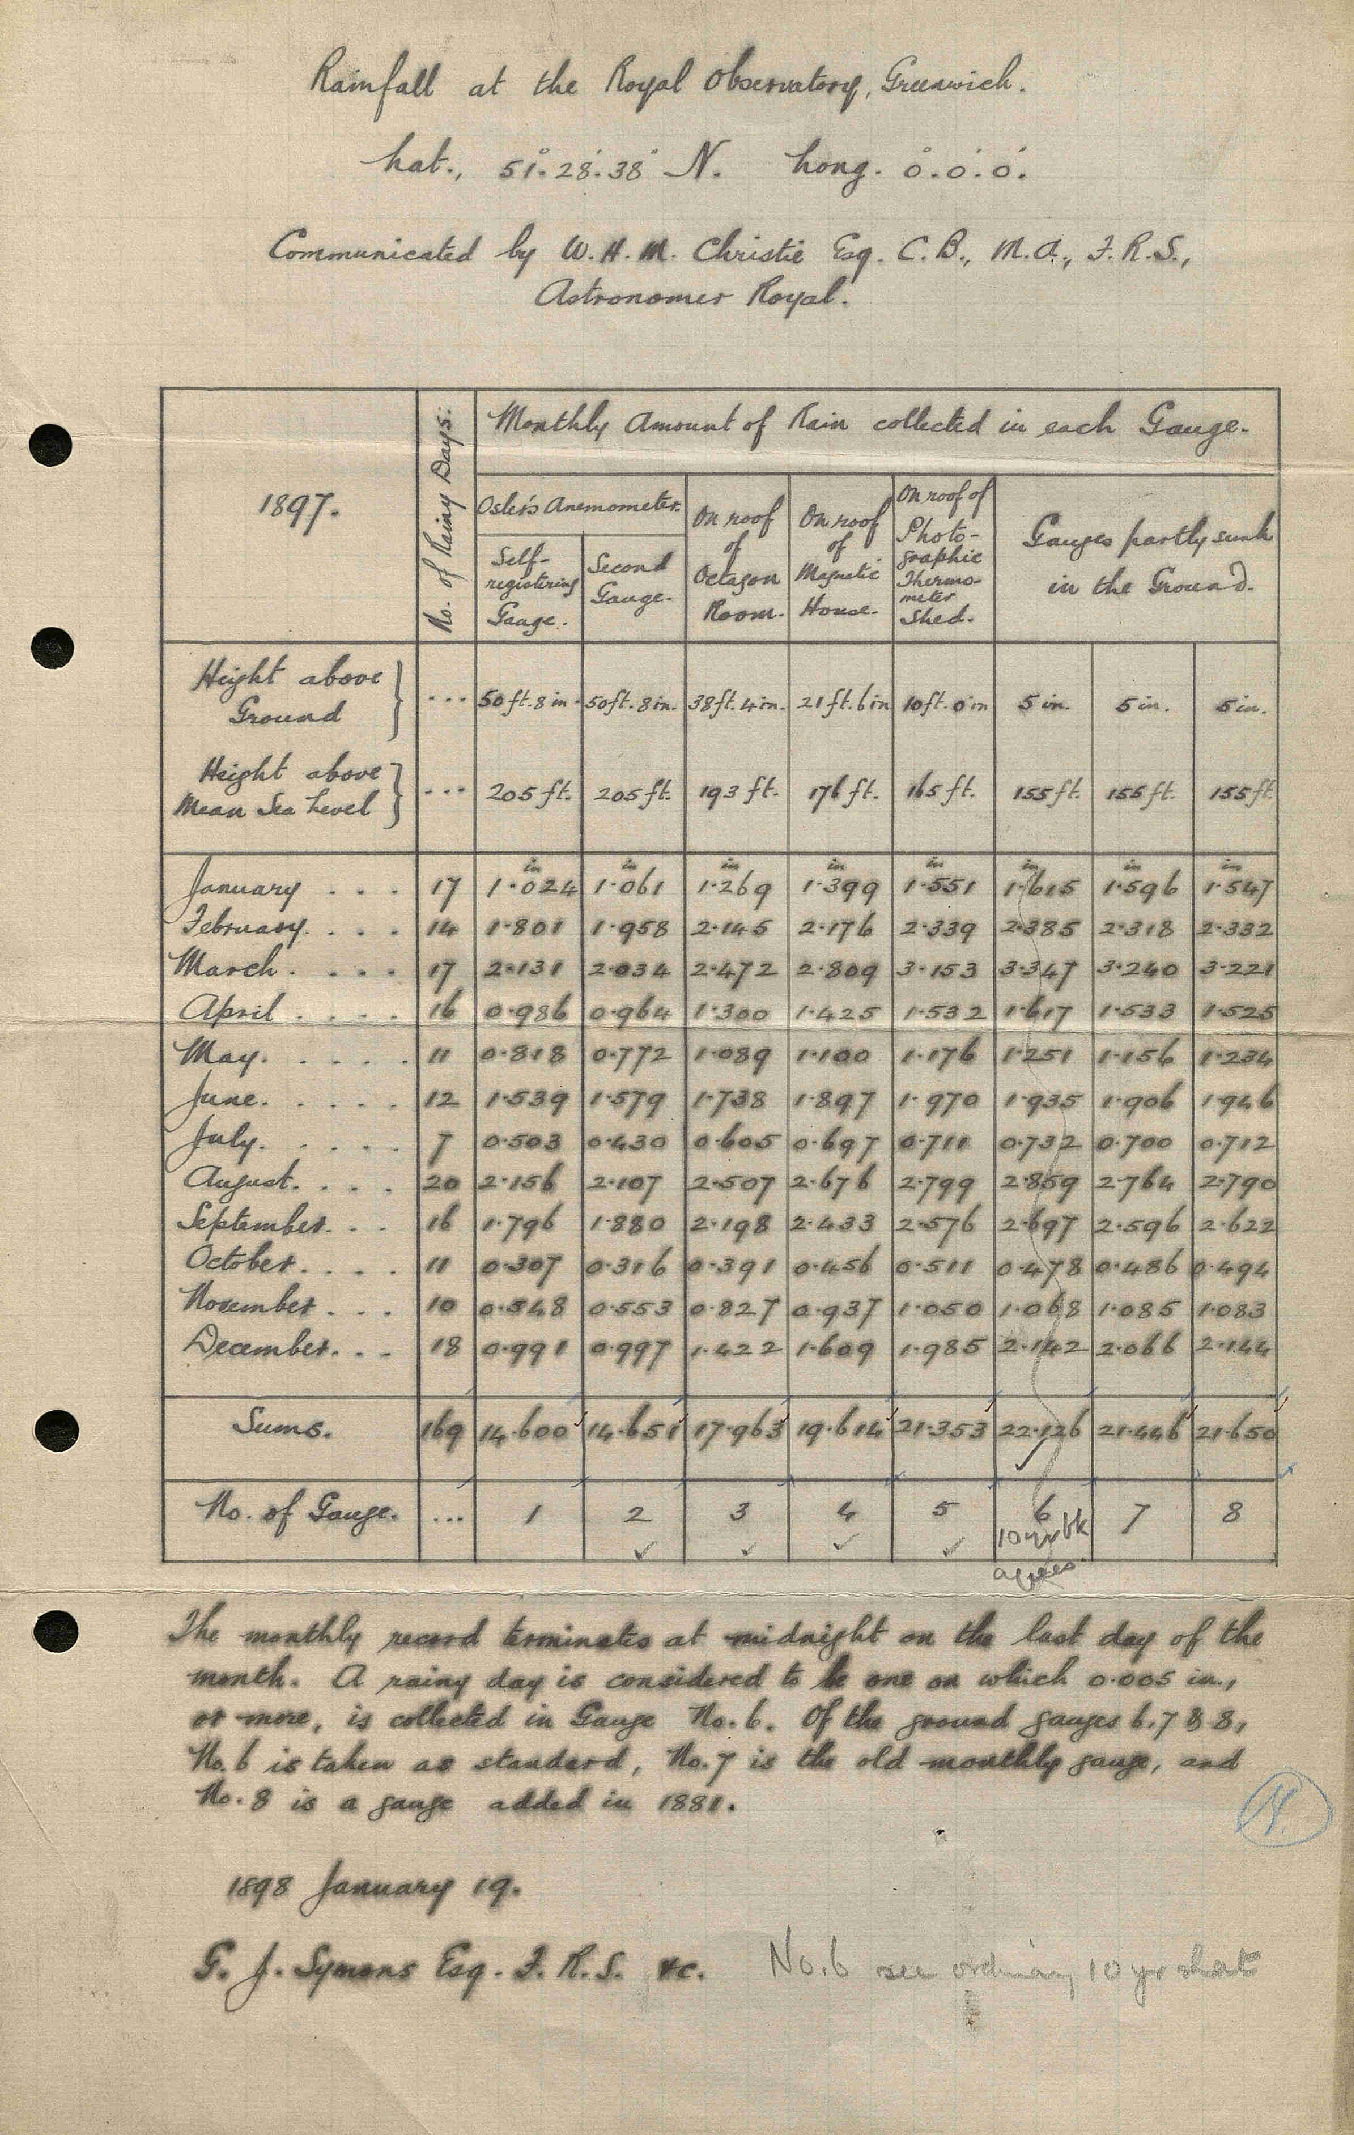 Rainfall at the Royal Observatory, Greenwich.
Lat., 51°.28'.38" N. Long. 0°.0'.0".
Communicated by W. H. M. Christie Esq. C.B., M.A., F.R.S.,
Astronomer Royal.
1897.
No. of Rainy Days.
Monthly Amount of Rain collected in each Gauge.
Osler's Anemometer.
Self-registering Gauge.
Second Gauge.
On roof of Octagon Room.
On roof of Magnetic House.
On roof of Photo-graphic Thermo-meter Shed.
Gauges partly sunk in the Ground.
Height above Ground } ... 50 ft. 8 in. 50 ft. 8 in. 38 ft. 4 in. 21 ft. 6 in 10 ft. 0 in 5 in. 5 in. 5 in.
Height above Mean Sea Level } ... 205 ft. 205 ft. 193 ft. 176 ft. 165 ft. 155 ft. 155 ft. 155 ft
in in in in in in in in
January . . . 17 1.024 1.061 1.269 1.399 1.551 1.615 1.596 1.547
February. . . . 14 1.801 1.958 2.145 2.176 2.339 2.385 2.318 2.332
March . . . . 17 2.131 2.034 2.472 2.809 3.153 3.347 3.240 3.221
April . . . . 16 0.986 0.964 1.300 1.425 1.532 1.617 1.533 1.525
May. . . . . 11 0.818 0.772 1.089 1.100 1.176 1.251 1.156 1.234
June. . . . . 12 1.539 1.579 1.738 1.897 1.970 1.935 1.906 1.946
July. . . . . 7 0.503 0.430 0.605 0.697 0.711 0.732 0.700 0.712
August. . . . 20 2.156 2.107 2.507 2.676 2.799 2.859 2.764 2.790
September. . . 16 1.796 1.880 2.198 2.433 2.576 2.697 2.596 2.622
October. . . . 11 0.307 0.316 0.391 0.456 0.511 0.478 0.486 0.494
November . . . 10 0.548 0.553 0.827 0.937 1.050 1.068 1.085 1.083
December. . . 18 0.991 0.997 1.422 1.609 1.985 2.142 2.066 2.144
Sums. 169 14.600 14.651 17.963 19.614 21.353 22.126 21.446 21.650
No. of Gauge. ... 1 2 3 4 5 6 7 8
10 yr bk
agrees.
The monthly record terminates at midnight on the last day of the
month. A rainy day is considered to be one on which 0.005 in.,
or more, is collected in Gauge No. 6. Of the ground gauges 6, 7 & 8,
No. 6 is taken as standard, No. 7 is the old monthly gauge, and
No. 8 is a gauge added in 1881.
N.
1898 January 19.
G. J. Symons Esq. F. R. S. &c.
No. 6 see ordinary 10 yr sheet